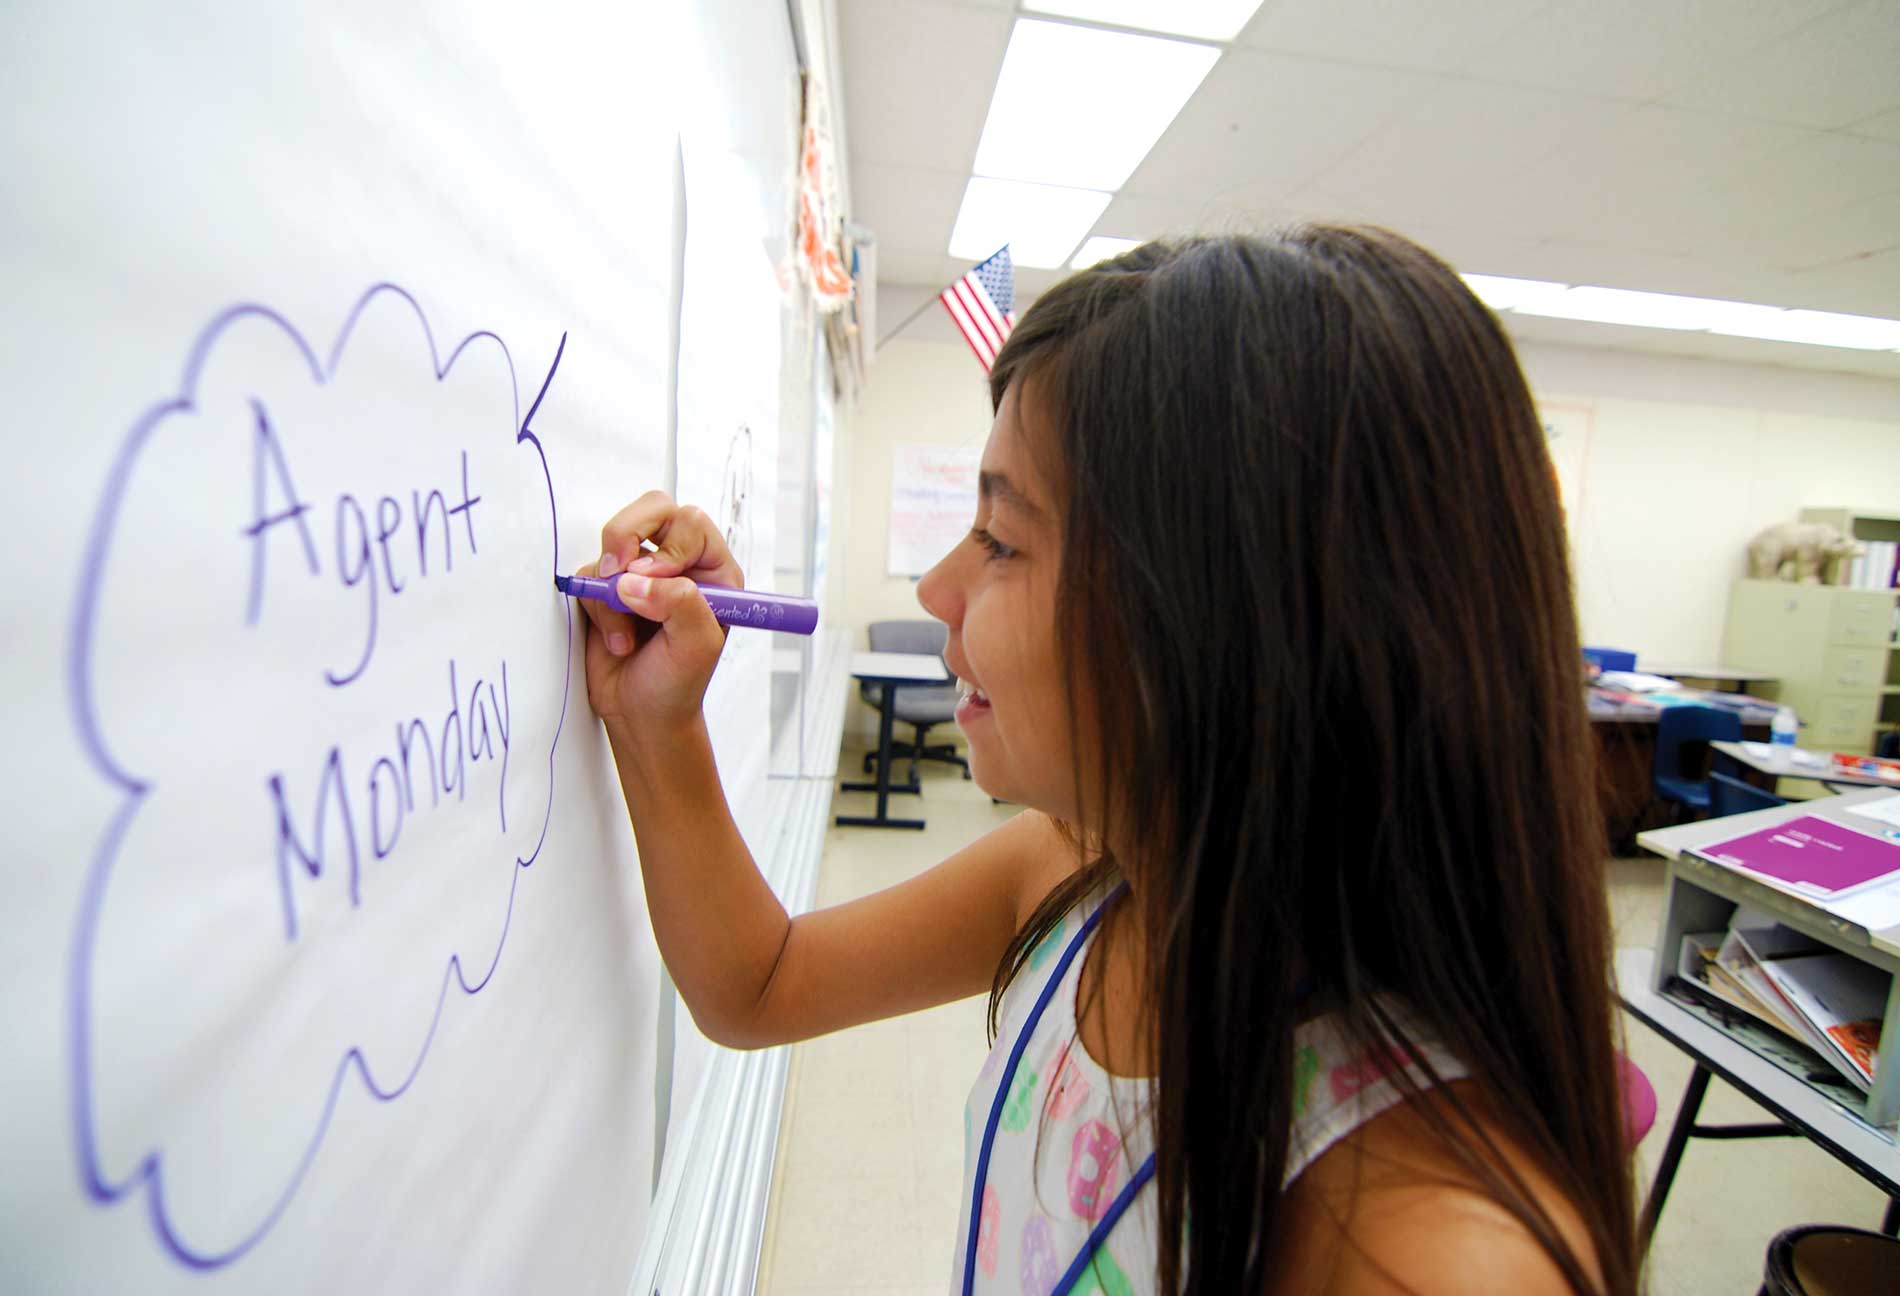 Agent
Monday
scented